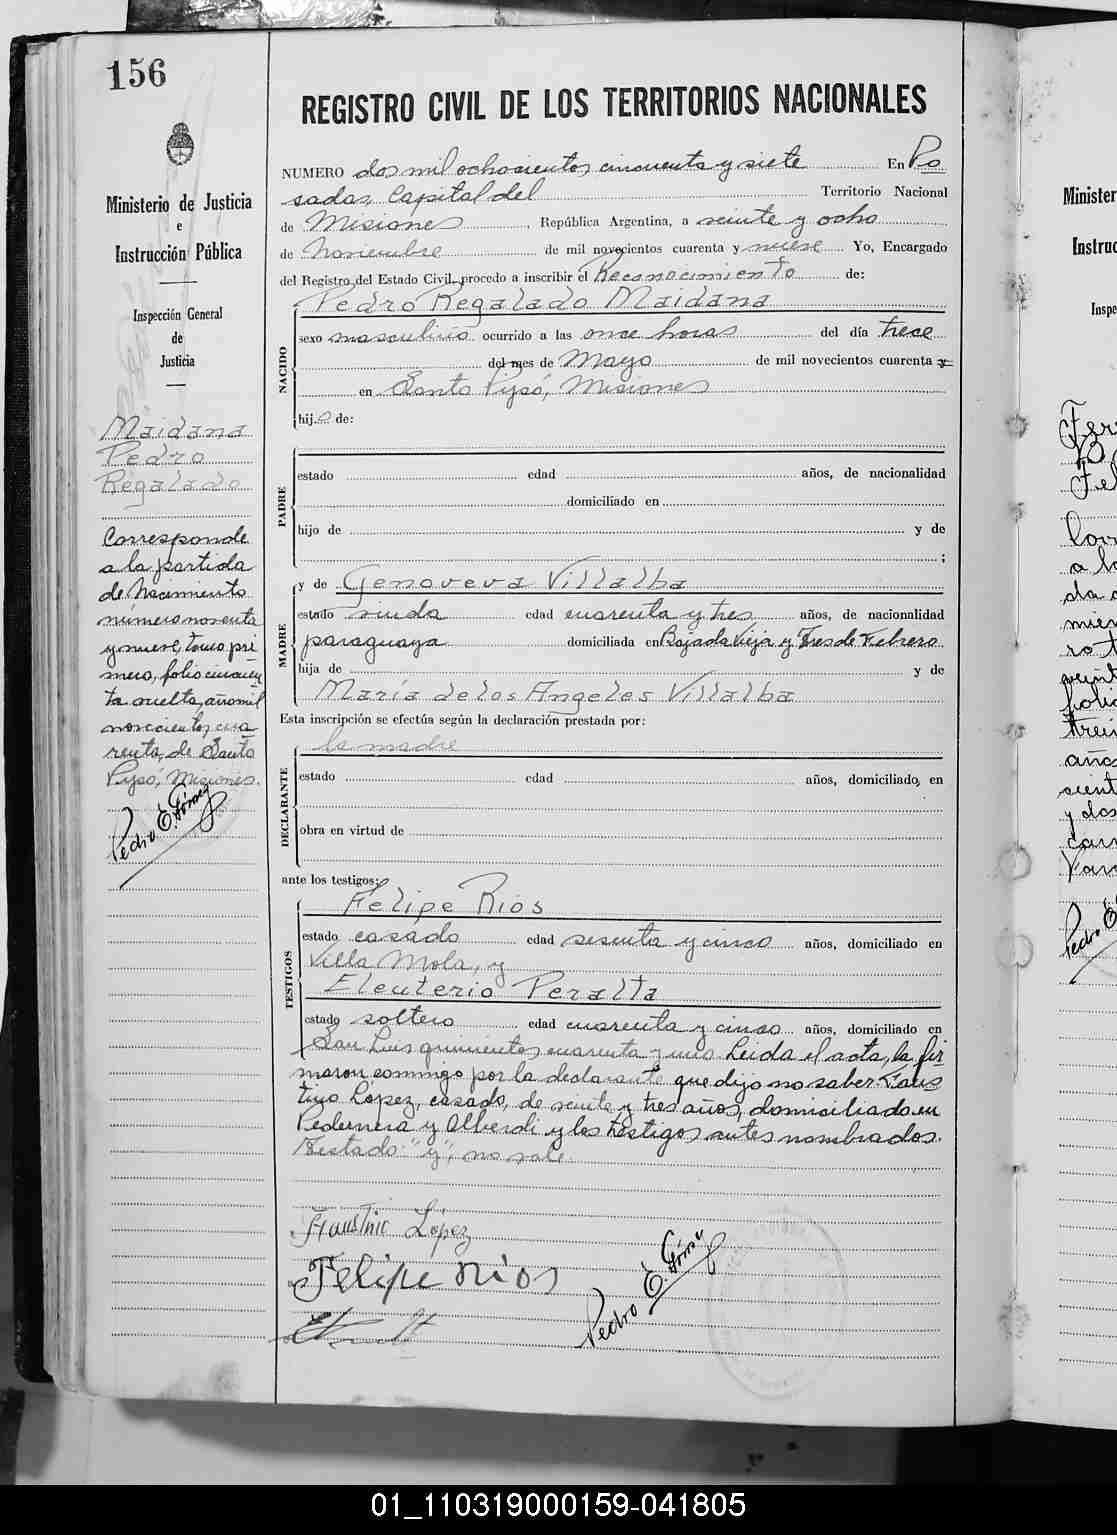 156
REGISTRO CIVIL DE LOS TERRITORIOS NACIONALES
Ministerio de Justicia
e
Instrucción Pública
Inspección General
de
Justicia
Maidana
Pedro
Regalado
Corresponde
a la partida
de Nacimiento
número noventa
y nueve, tomo pri
mero, folio cincuen
ta vuelta, año mil
novecientos cua
renta, de Santo
Pipó, Misiones.
Pedro E. Gómez
NUMERO dos mil ochocientos cincuenta y siete En Po
sadas, Capital del Territorio Nacional
de Misiones, República Argentina, a veinte y ocho
de Noviembre de mil novecientos cuarenta y nueve Yo, Encargado
del Registro del Estado Civil, procedo a inscribir el Reconocimiento de:
Pedro Regalado Maidana
NACIDO
sexo masculino ocurrido a las once horas del día trece
del mes de Mayo de mil novecientos cuarenta y
en Santo Pipó, Misiones
hijo de:
PADRE
estado edad años, de nacionalidad
domiciliado en
hijo de y de
;
y de Genoveva Villalba
MADRE
estado viuda edad cuarenta y tres años, de nacionalidad
paraguaya domiciliada en Bajada Vieja y Tres de Febrero
hija de y de
María de los Angeles Villalba
Esta inscripción se efectúa según la declaración prestada por:
la madre
DECLARANTE
estado edad años, domiciliado, en
obra en virtud de
ante los testigos:
Felipe Rios
TESTIGOS
estado casado edad sesenta y cinco años, domiciliado en
Villa Mola, y
Eleuterio Peralta
estado soltero edad cuarenta y cinco años, domiciliado en
San Luis quinientos cuarenta y uno Leida el acta, la fir
maron conmigo por la declarante que dijo no saber Faus
tino López, casado, de veinte y tres años, domiciliado en
Pedernera y Alberdi y los testigos antes nombrados.
Testado: "y", no vale.
Faustino López
Felipe Rios
Pedro E. Gómez
Minister
Instruc
Inspe
01_110319000159-041805